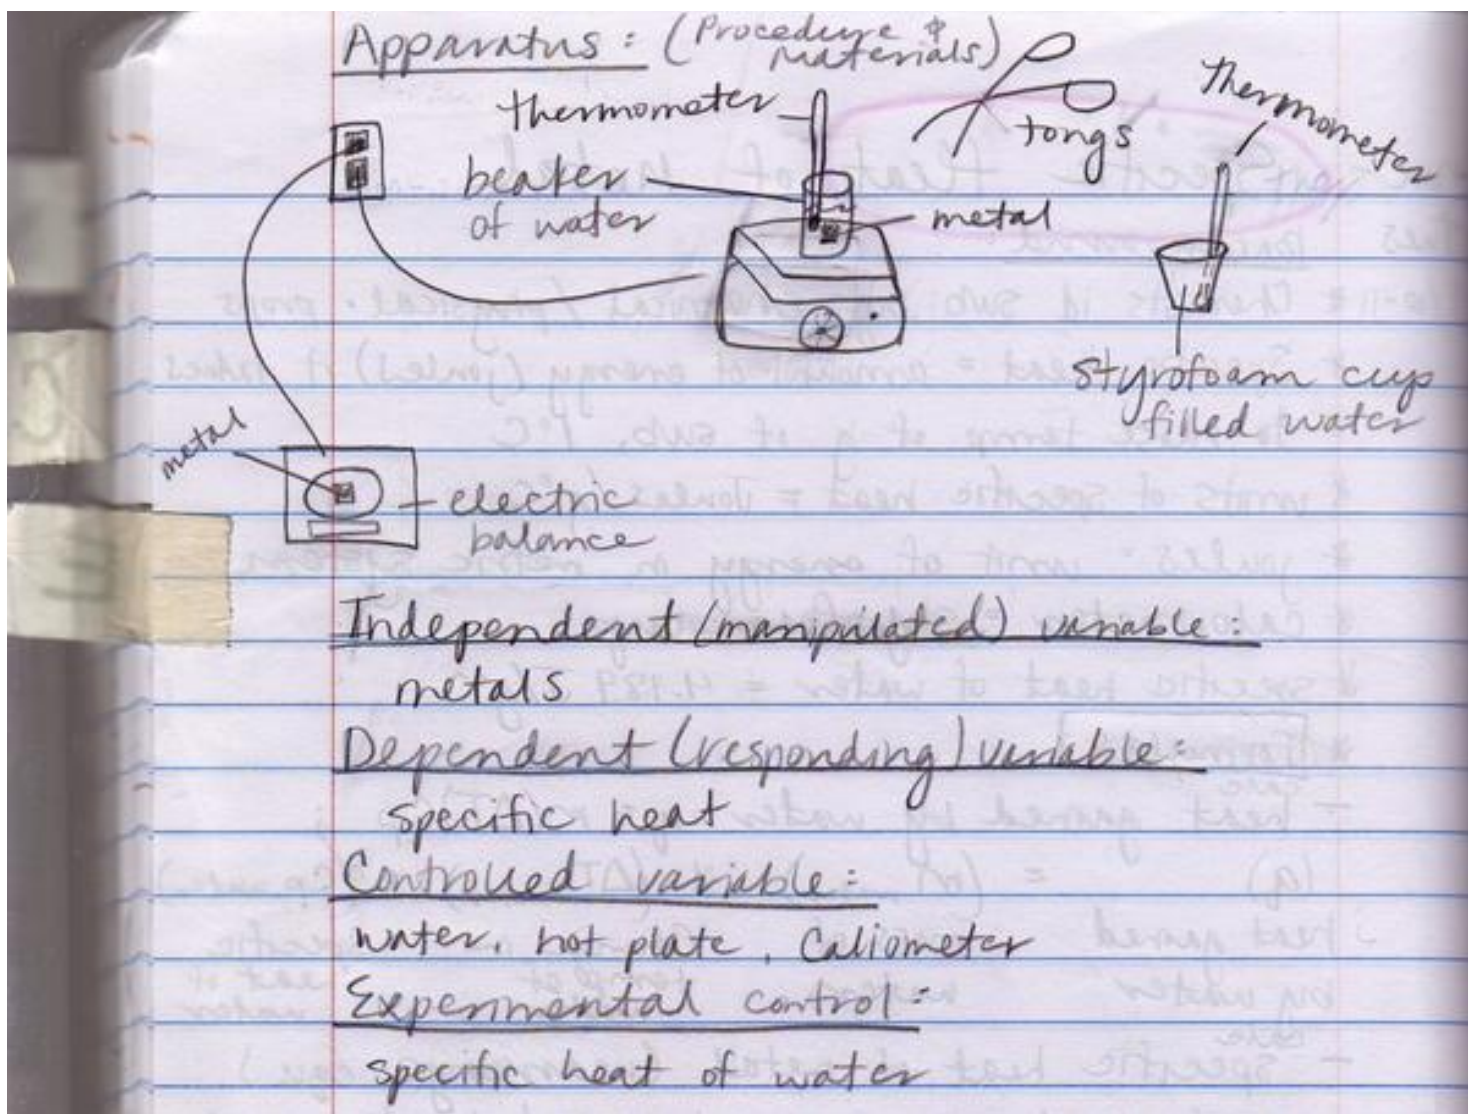 Apparatus: (Procedure &
Materials)
thermometer
tongs
thermometer
beaker
of water
metal
styrofoam cup
filled water
metal
electric
balance
Independent (manipulated) variable:
metals
Dependent (responding) variable:
specific heat
Controlled variable:
water, hot plate, Caliometer
Experimental control:
specific heat of water